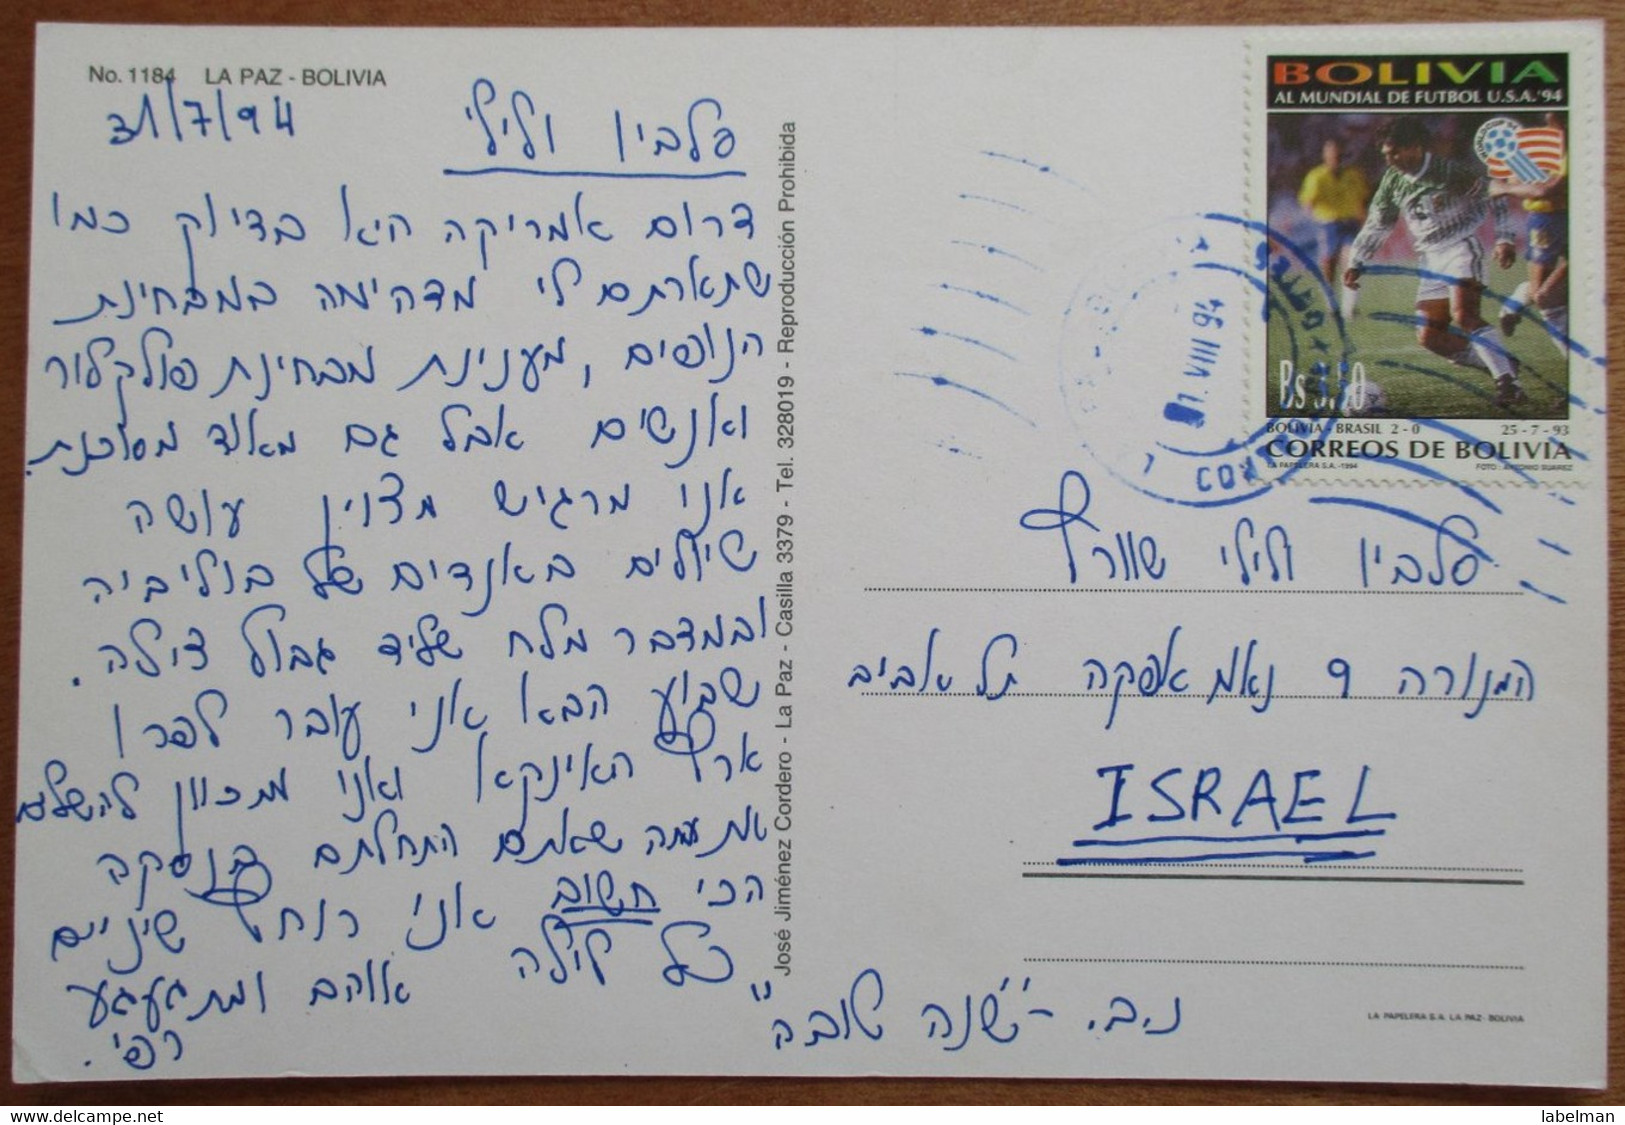 No. 1184 LA PAZ - BOLIVIA
31/7/94
סלבין ולילי
דרום אמריקה היא בדיוק כמו
שתארתם לי מדהימה במבחינת
הנופים, מענינת מבחינת פולקלור
ואנשים אבל גם מאוד מסוכנת.
אני מרגיש מצוין עושה
טיולים באנדים של בוליביה
ובמדבר מלח שליד גבול צ'ילה.
שבוע הבא אני עובר לפרו
ארץ האינקא ואני מתכוון להשלים
את מה שאתם התחלתם
הכי חשוב אני רוחץ שיניים
כל לילה אוהב ומתגעגע
רפי.
José Jiménez Cordero - La Paz - Casilla 3379 - Tel. 328019 - Reproducción Prohibida
BOLIVIA
AL MUNDIAL DE FUTBOL U.S.A.'94
Bs 3,50
BOLIVIA - BRASIL 2 - 0 25 - 7 - 93
CORREOS DE BOLIVIA
LA PAPELERA S.A. -1994 FOTO : ANTONIO SUAREZ
1. VIII 94
סלבין ולילי שוורץ
המנורה 9 נאות אפקה תל אביב
ISRAEL
נ.ב. - "שנה טובה"
LA PAPELERA S.A. LA PAZ - BOLIVIA
labelman delcampe.net